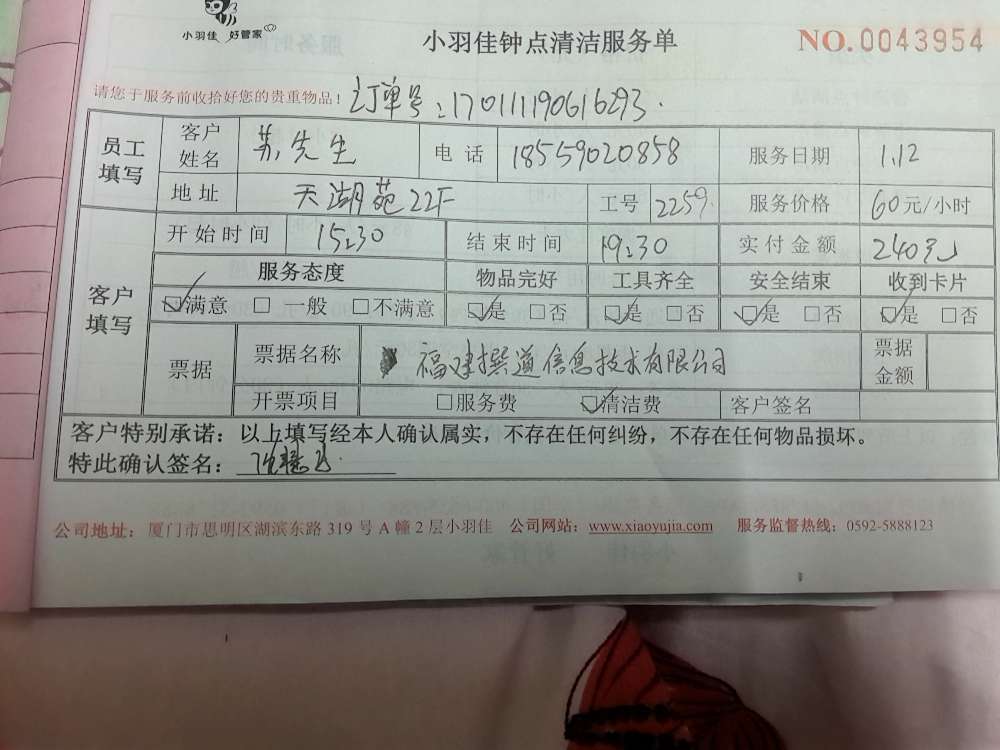 小羽佳 好管家
小羽佳钟点清洁服务单
NO.0043954
请您于服务前收拾好您的贵重物品!
订单号:170111190616293.
员工填写 客户姓名 苏先生 电话 18559020858 服务日期 1.12
地址 天湖苑22F 工号 2259. 服务价格 60元/小时
客户填写 开始时间 15:30 结束时间 19:30 实付金额 240元
服务态度 物品完好 工具齐全 安全结束 收到卡片
☑满意 □一般 □不满意 ☑是 □否 ☑是 □否 ☑是 □否 ☑是 □否
票据 票据名称 福建撰道信息技术有限公司 票据金额
开票项目 □服务费 ☑清洁费 客户签名
客户特别承诺:以上填写经本人确认属实,不存在任何纠纷,不存在任何物品损坏。
特此确认签名:
公司地址:厦门市思明区湖滨东路 319 号 A 幢 2 层小羽佳 公司网站:www.xiaoyujia.com 服务监督热线:0592-5888123